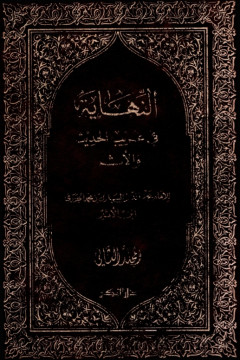 النهاية
في غريب الحديث
والأثر
ابن الأثير
المجلد الثاني
دار الفكر